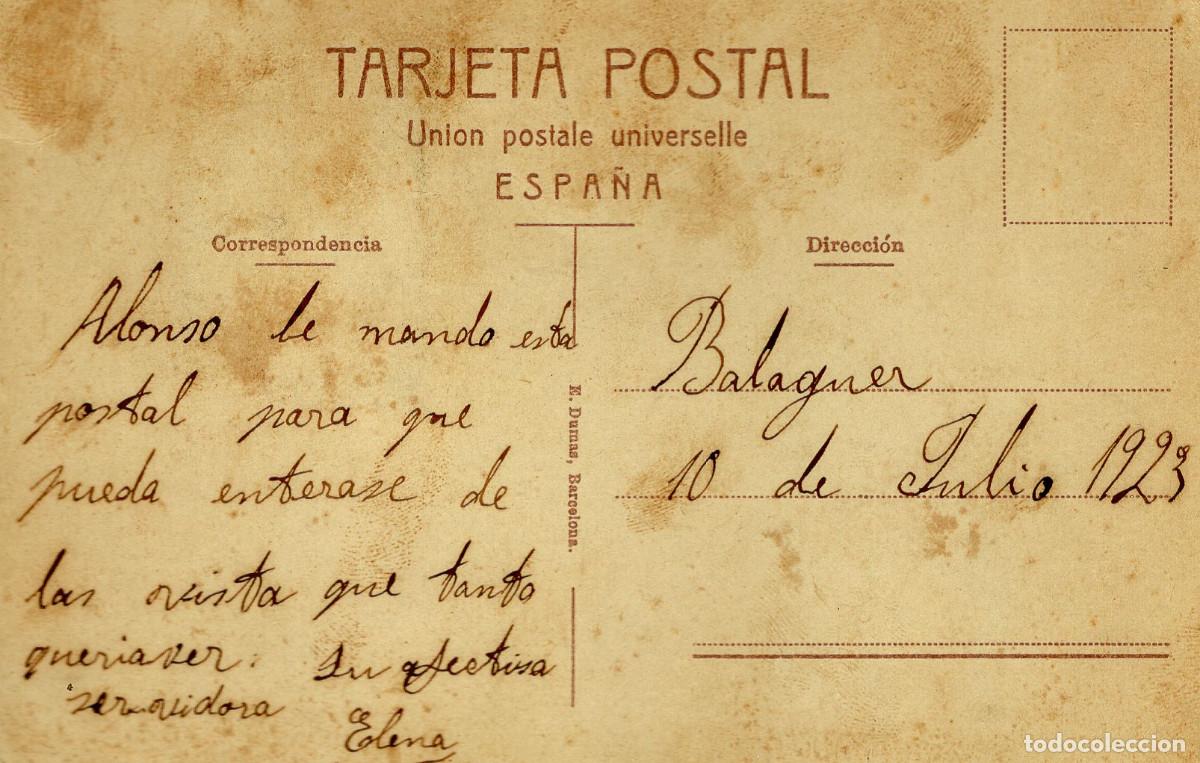 TARJETA POSTAL
Union postale universelle
ESPAÑA
Correspondencia
Alonso le mando esta
postal para que
pueda enterase de
las vista que tanto
queria ver. Su afectisa
servidora
Elena
E. Dumas, Barcelona.
Dirección
Balaguer
10 de Julio 1923
todocoleccion